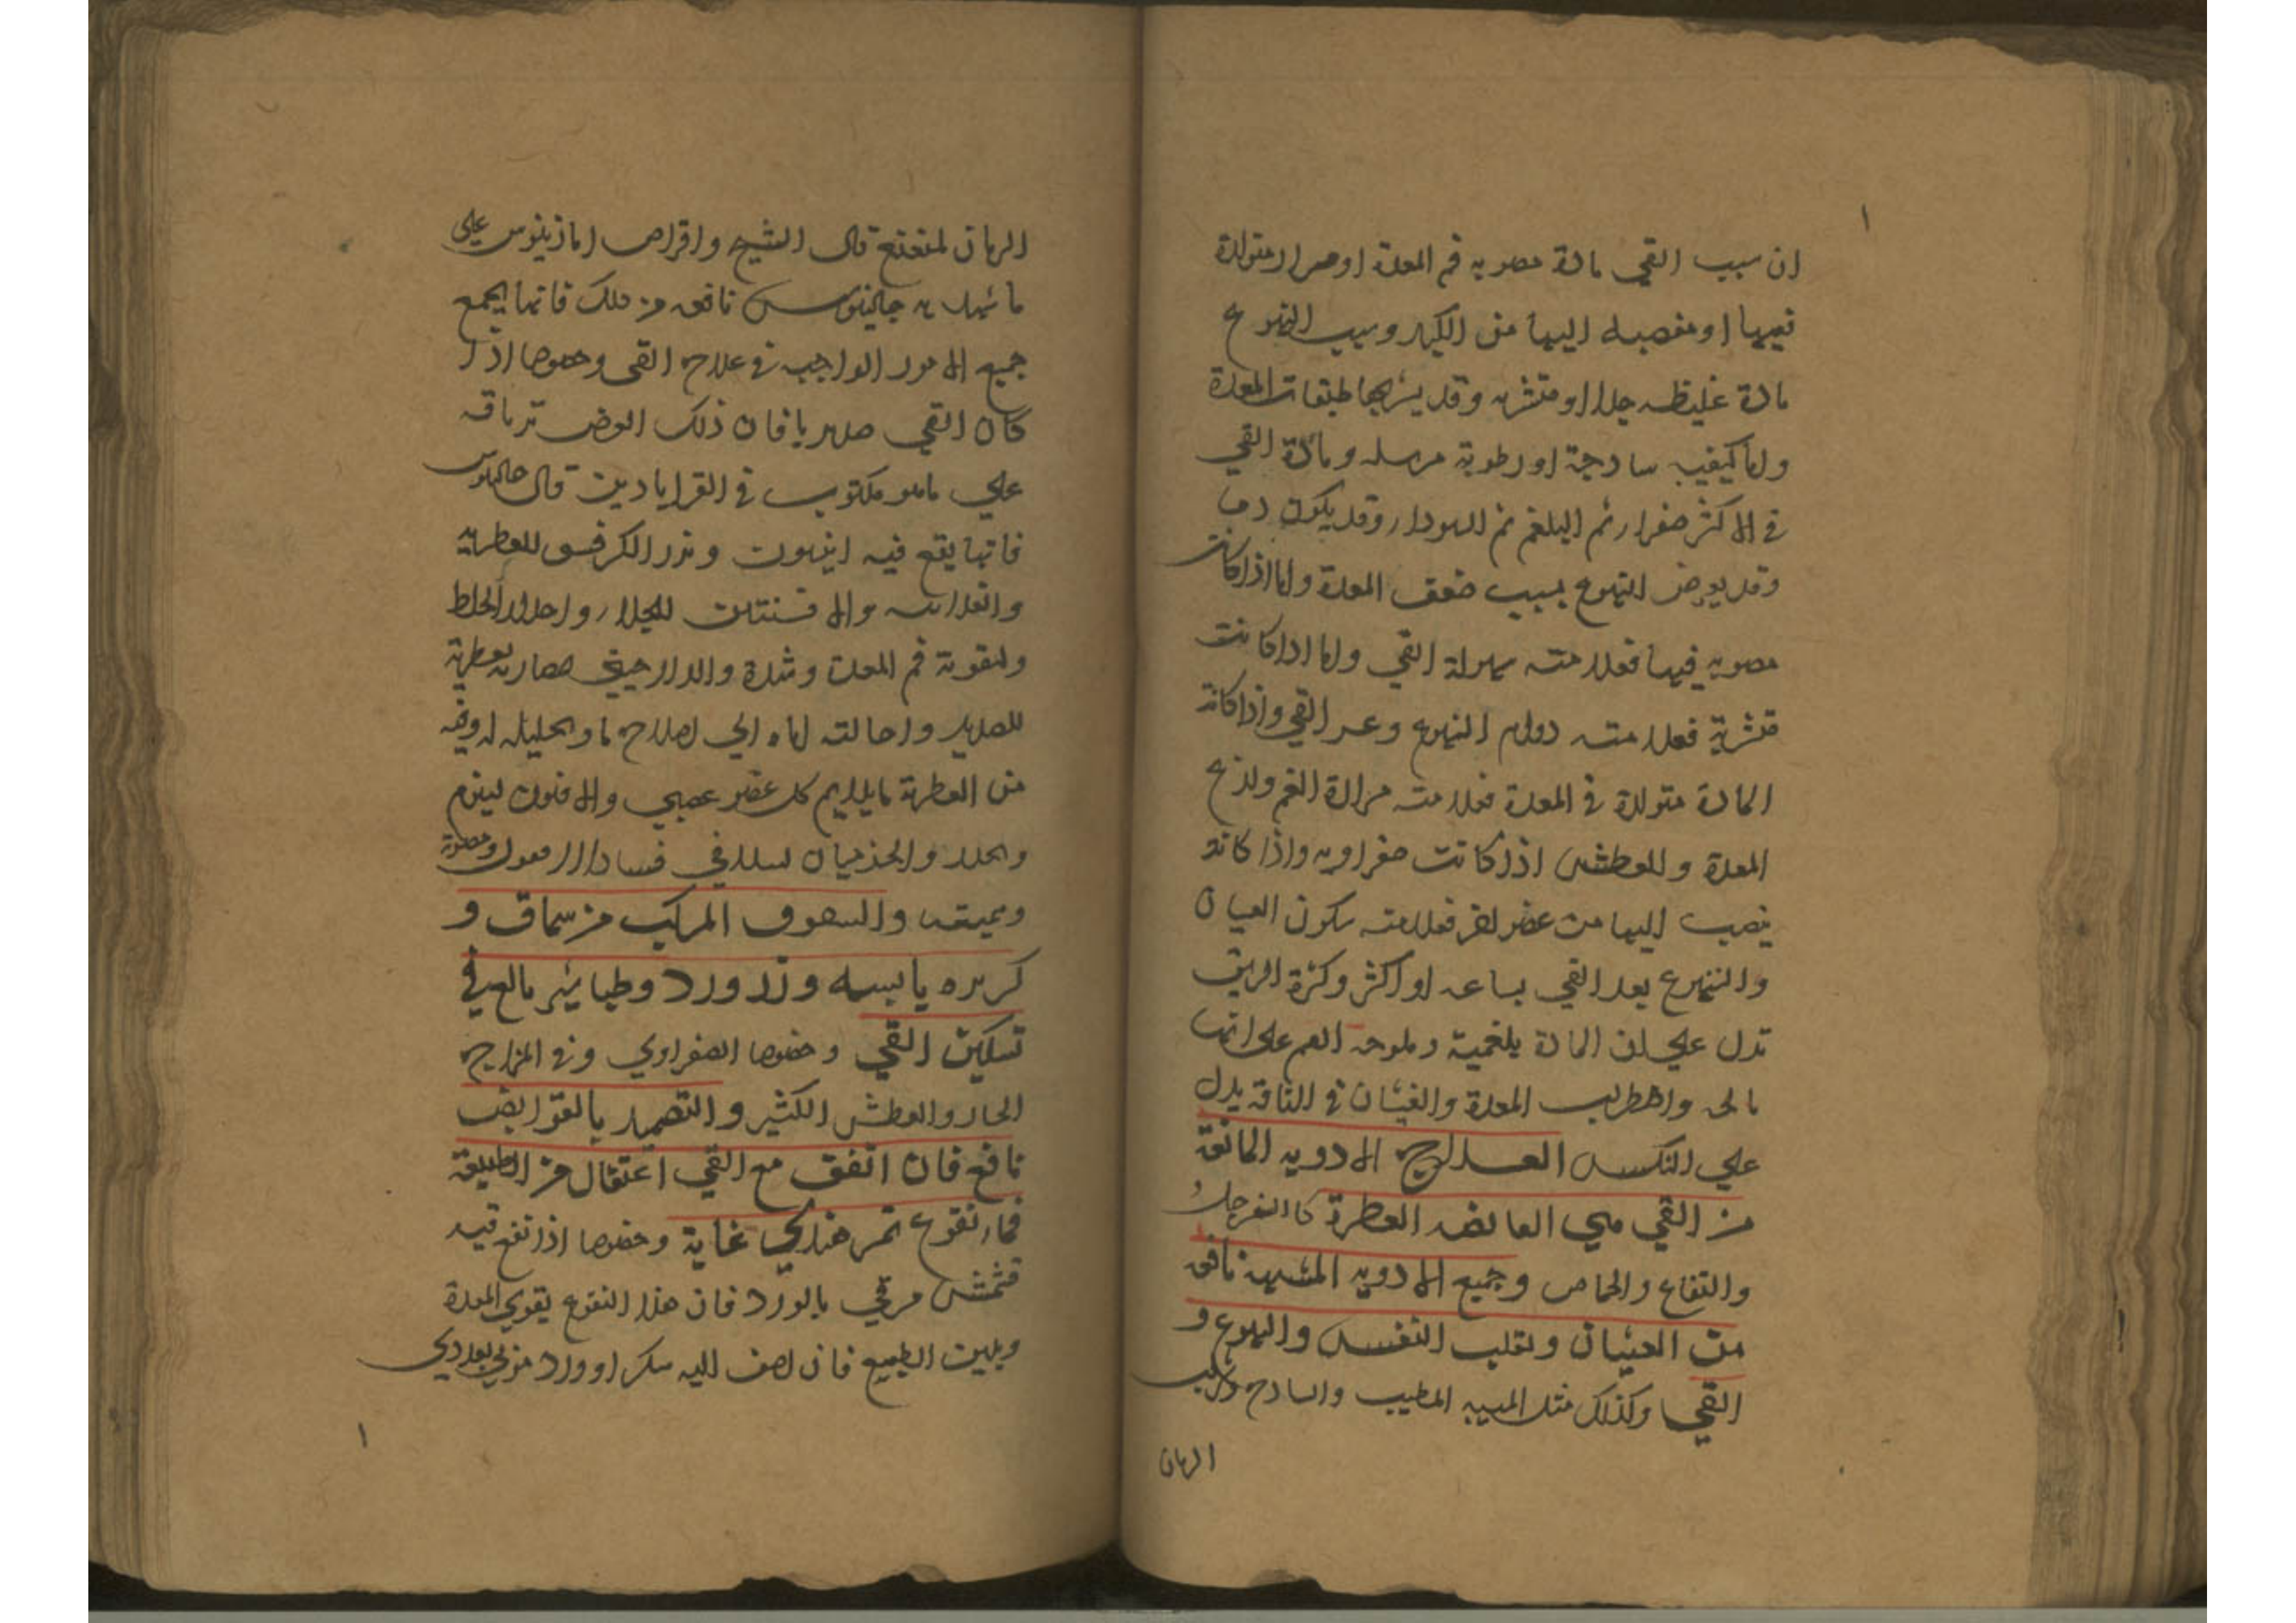 ان سبب القي مادة مصوبه فم المعدة او مرار متولدة
فيها او منصبه اليها من الكبد وسبب التهوع
مادة غليظه جدا او متشربه وقد يشربها طبقات المعدة
واما كيفيه ساذجة او رطوبة مرسله ومادة القي
في الاكثر صفرا ثم البلغم ثم السودا وقد يكون دما
وقد يعرض التهوع بسبب ضعف المعدة واما اذا كانت
مصوبه فيها فعلامته سهولة القي واما اذا كانت
متشربة فعلامته دوام التهوع وعسر القي واذا كانت
المادة متولدة في المعدة فعلامته مرارة الفم ولذع
المعدة والعطش اذا كانت صفراويه واذا كانت
ينصب اليها من عضو اخر فعلامته سكون الغثيان
والتهوع بعد القي بساعه او اكثر وكثرة الريق
تدل على ان المادة بلغمية وملوحه الفم على انها
مالحه واضطراب المعدة والغثيان في الناقه يدل
علي النكس العلاج الادويه المانعة
من القي هي القابضه العطرة كالسفرجل
والتفاح والحماض وجميع الادويه نافعه
من الغثيان وتقلب النفس والتهوع و
القي وكذلك مثل الميبه المطيب والساذج
الرمان
الرمان المنعنع قال الشيخ واقراص اماذينوس على
ما شهد به جالينوس نافعه من ذلك فانها يجمع
جميع الامور الواجبه في علاج القي وخصوصا اذا
كان القي صديديا فان ذلك القرص ترياقه
علي ما هو مكتوب في القراباذين قال جالينوس
فانها يقع فيه انيسون وبزر الكرفس للعطريه
والافسنتين للجلا واحدار الخلط
ولتقوية فم المعدة وشده والدارصيني بعطرية
للصديد واحالته اياه الي اصلاح ما وتحليله له وفيه
من العطرية ما يلايم كل عضو عصبي والافيون لينوم
ويخدر والجندبيدستر لتلافي فساد الافيون ومضرته
والسفوف المركب من سماق و
كزبره يابسه وزر ورد وطباشير بالغ في
تسكين القي وخصوصا الصفراوي وفي المزاج
الحار والعطش الكثير والتضميد بالقوابض
نافع فان اتفق مع القي اعتقال من الطبيعة
فماء نقوع تمر هندي غاية وخصوصا اذا نقع فيه
مشمش مرقي بالورد فان هذا النقوع يقوي المعدة
ويلين الطبيع فان اضف اليه سكر او ورد مربي